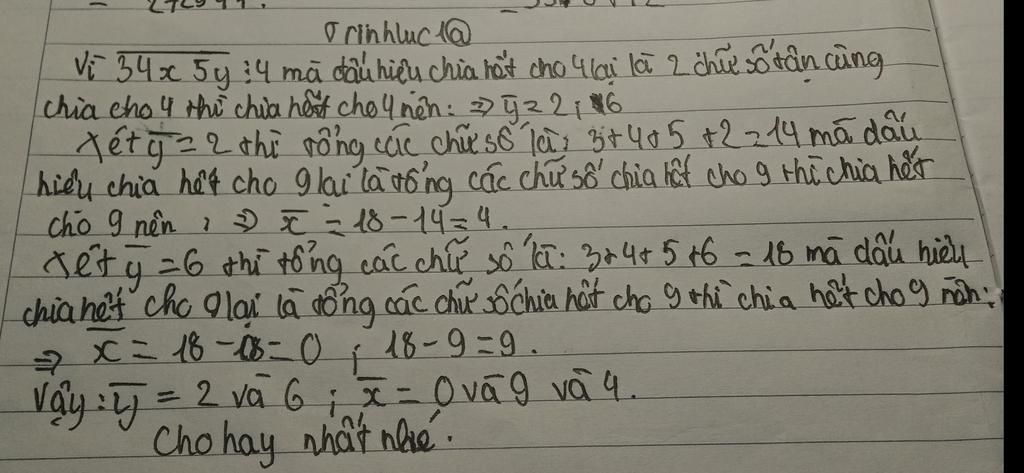 Trinhluc1@
Vì 34x5y ⋮ 4 mà dấu hiệu chia hết cho 4 lại là 2 chữ số tận cùng
chia cho 4 thì chia hết cho 4 nên: ⇒ y = 2 ; 6
Xét y = 2 thì tổng các chữ số là: 3+4+5+2=14 mà dấu
hiệu chia hết cho 9 lại là tổng các chữ số chia hết cho 9 thì chia hết
cho 9 nên : ⇒ x = 18-14=4.
Xét y = 6 thì tổng các chữ số là: 3+4+5+6 = 18 mà dấu hiệu
chia hết cho 9 lại là tổng các chữ số chia hết cho 9 thì chia hết cho 9 nên:
⇒ x = 18-18=0 ; 18-9=9.
Vậy: y = 2 và 6 ; x = 0 và 9 và 4.
Cho hay nhất nhé.